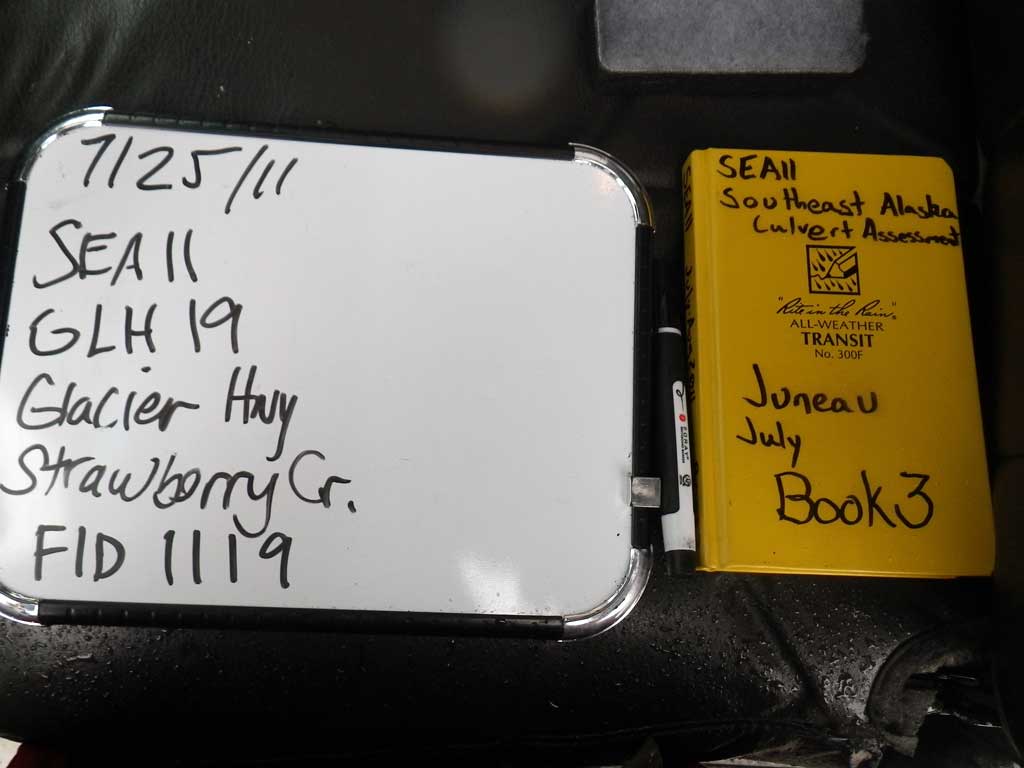 7/25/11
SEA11
GLH 19
Glacier Hwy
Strawberry Cr.
FID 1119
SEA11
Southeast Alaska
Culvert Assessment
"Rite in the Rain"®
ALL-WEATHER
TRANSIT
No. 300F
Juneau
July
Book 3
SEA11